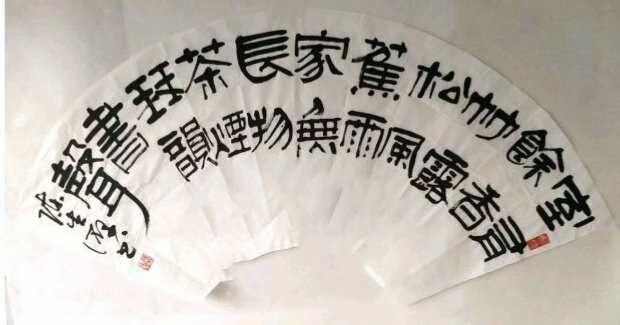 室有
餘香
竹露
松風
蕉雨
家無
長物
茶煙
琴韻
書
聲